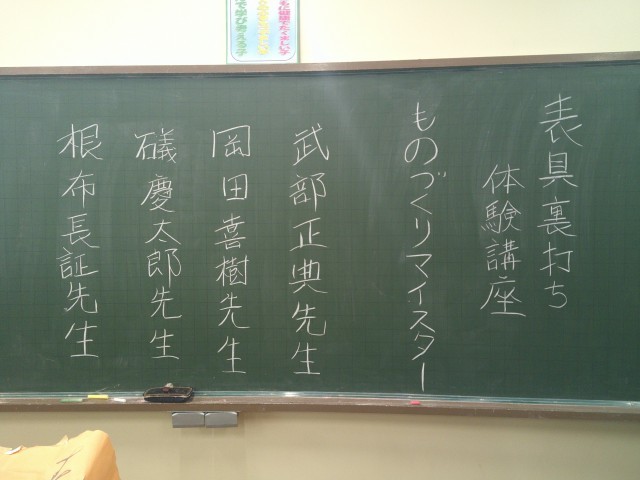 表具裏打ち
体験講座
ものづくりマイスター
武部正典先生
岡田喜樹先生
礒慶太郎先生
根布長証先生